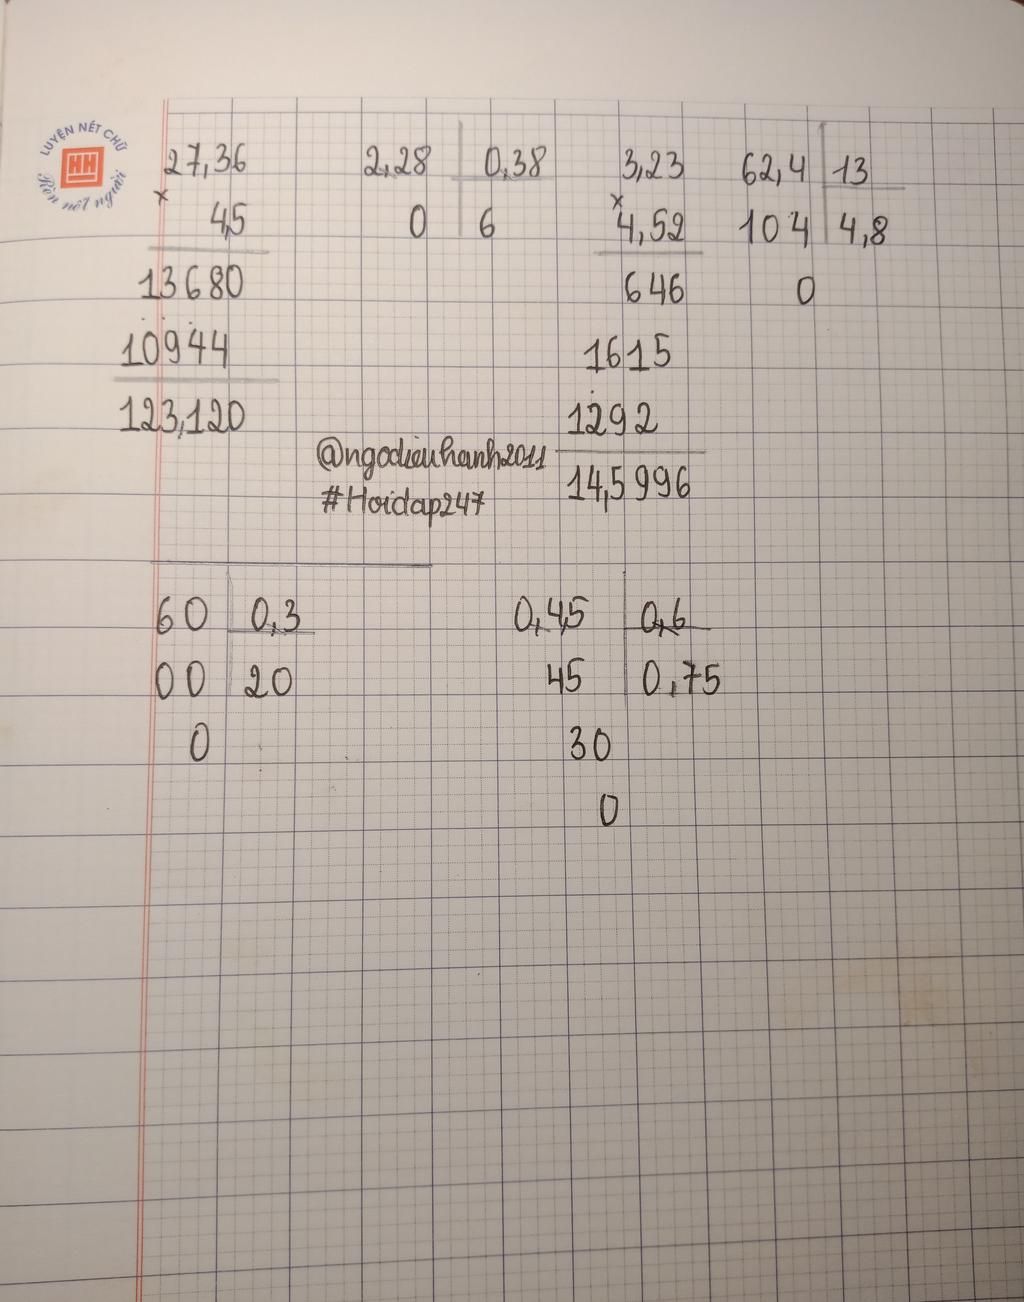 LUYỆN NÉT CHỮ
HH
Rèn nết người
27,36
×
4,5
13680
10944
123,120
2,28 0,38
0 6
3,23
×
4,52
646
1615
1292
14,5996
62,4 13
104 4,8
0
@ngodieuhanh2011
#Hoidap247
60 0,3
00 20
0
0,45 0,6
45 0,75
30
0